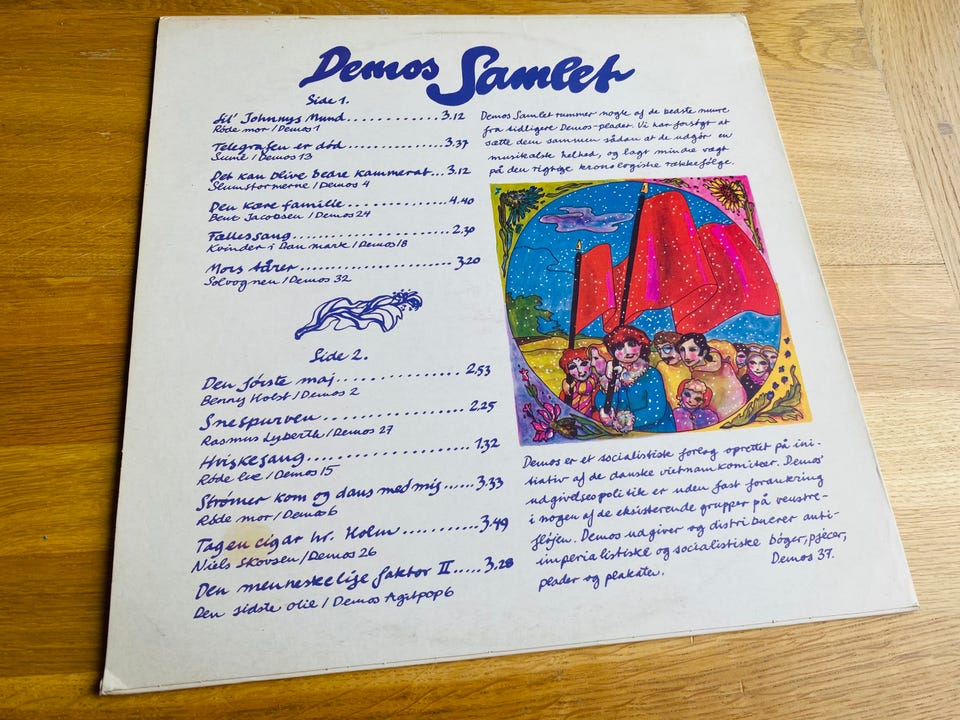 Demos Samlet
Side 1.
Lil' Johnnys Mund............3.12
Røde mor/Demos 1
Telegrafen er død..............3.37
Sume/Demos 13
Det kan blive bedre kammerat...3.12
Slumstormerne/Demos 4
Den kære familie...............4.40
Bent Jacobsen/Demos 24
Fællessang.....................2.30
Kvinder i Danmark/Demos 18
Mors tårer.....................3.20
Solvognen/Demos 32
Side 2.
Den første maj................2.53
Benny Holst/Demos 2
Snespurven...................2.25
Rasmus Lyberth/Demos 27
Hviskesang...................1.32
Røde Eve/Demos 15
Strømer kom og dans med mig......3.33
Røde mor/Demos 6
Tag en cigar hr. Holm..........3.49
Niels Skousen/Demos 26
Den menneskelige faktor II.....3.28
Den sidste olie/Demos Agitpop 6
Demos Samlet rummer nogle af de bedste numre
fra tidligere Demos-plader. Vi har forsøgt at
sætte dem sammen sådan at de udgør en
musikalsk helhed, og lagt mindre vægt
på den rigtige kronologiske rækkefølge.
Demos er et socialistisk forlag oprettet på ini-
tiativ af de danske vietnamkomiteer. Demos'
udgivelsespolitik er uden fast forankring
i nogen af de eksisterende grupper på venstre-
fløjen. Demos udgiver og distribuerer anti-
imperialistiske og socialistiske bøger, pjecer,
plader og plakater.
Demos 37.